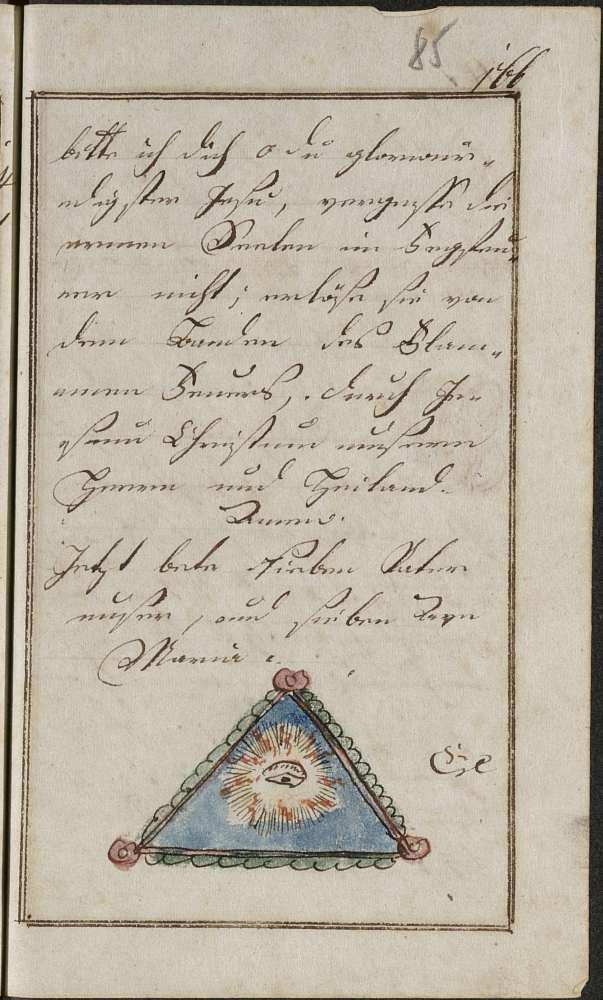 85
166
bitte ich dich o du glorwür„
digster Jesu, vergesse die
armen Seelen im Fegfeu„
er nicht; erlöse sie von
dem Banden des Flam„
men Feuers, durch Je„
sum Christum unsern
Herrn und Heiland.
Amen.
Jetzt bete sieben Vater
unser, und sieben Ave
Maria